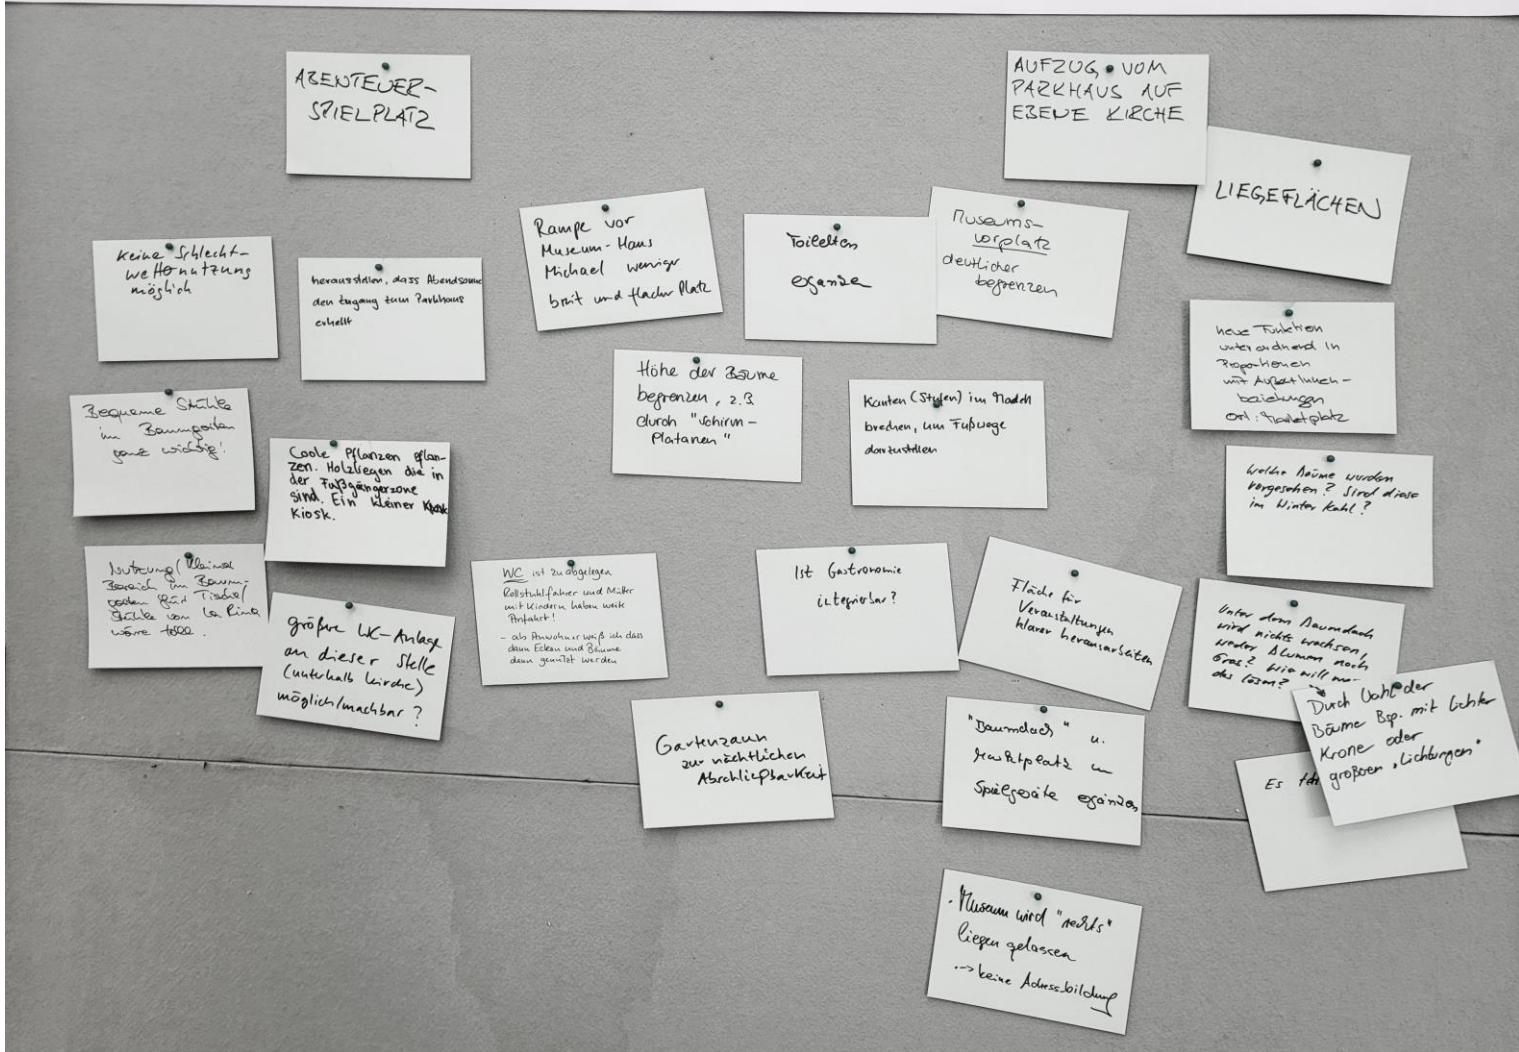 ABENTEUER-
SPIELPLATZ
AUFZUG VOM
PARKHAUS AUF
EBENE KIRCHE
LIEGEFLÄCHEN
Keine Schlecht-
wetternutzung
möglich
herausstellen, dass Abendsonne
den Zugang zum Parkhaus
erhellt
Rampe vor
Museum-Haus
Michael weniger
breit und flacher Platz
Toiletten
ergänzen
Museums-
vorplatz
deutlicher
begrenzen
neue Funktion
unterordnend in
Proportionen
mit
beziehungen
Ort: Marktplatz
Bequeme Stühle
im Baumgarten
ganz wichtig!
Coole Pflanzen pflan-
zen. Holzliegen die in
der Fußgängerzone
sind. Ein kleiner
Kiosk.
Höhe der Bäume
begrenzen, z.B.
durch "Schirm-
Platanen"
Kanten (Stufen) im
brechen, um Fußwege
darzustellen
Welche Bäume wurden
vorgesehen? Sind diese
im Winter kahl?
Nutzung/kleiner
Bereich im Baum-
garten für Tische/
Stühle vom La Rima
wäre toll.
größere WC-Anlage
an dieser Stelle
(unterhalb Kirche)
möglich/machbar?
WC ist zu abgelegen
Rollstuhlfahrer und Mütter
mit Kindern haben weite
Anfahrt!
- als Anwohner weiß ich dass
dann Ecken und Bäume
dann genutzt werden
Ist Gastronomie
integrierbar?
Fläche für
Veranstaltungen
klarer herausarbeiten
Unter dem Baumdach
wird nichts wachsen,
weder Blumen noch
Gras? Wie will ma
das lösen?
Durch Wahl der
Bäume Bsp. mit lichter
Krone oder
größeren "Lichtungen"
Es
Gartenzaun
zur nächtlichen
Abschließbarkeit
"Baumdach" u.
Marktplatz um
Spielgeräte ergänzen
. Museum wird "rechts"
liegen gelassen
--> keine Adressbildung